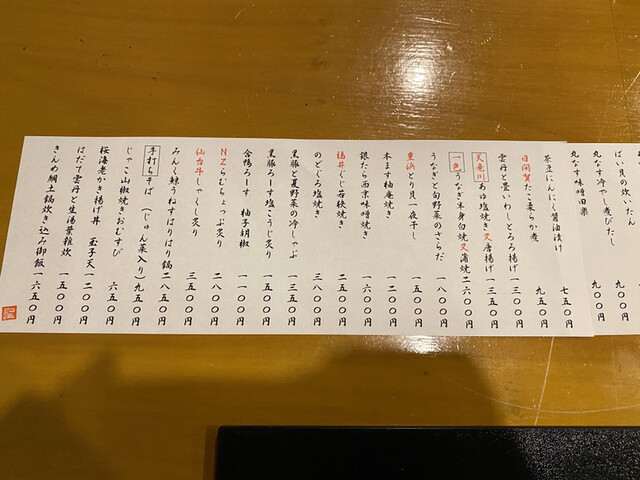 ばい貝の炊いたん
丸なす冷やし煮びたし 九〇〇円
丸なす味噌田楽 九〇〇円
茶豆にんにく醤油漬け 七五〇円
日間賀たこ柔らか煮 九五〇円
雲丹と畳いわしとろろ揚げ 一三〇〇円
天竜川あゆ塩焼き又唐揚げ 一三五〇円
一色うなぎ半身白焼又蒲焼 二六〇〇円
うなぎと旬野菜のさらだ 一八〇〇円
豊浜とり貝一夜干し 一五〇〇円
本ます柚庵焼き 一二〇〇円
銀たら西京味噌焼き 一六〇〇円
福井ぐじ若狭焼き 二五〇〇円
のどぐろ塩焼き 三八〇〇円
黒豚と夏野菜の冷しゃぶ 一三五〇円
黒豚ろーす塩こうじ炙り 一五〇〇円
合鴨ろーす 柚子胡椒 一一〇〇円
NZらむちょっぷ炙り 二八〇〇円
仙台牛しゃくし炙り 三五〇〇円
みんく鯨うねすはりはり鍋 二八五〇円
手打ちそば(じゅん菜入り) 九五〇円
じゃこ山椒焼きおむすび 六五〇円
桜海老かき揚げ丼 玉子天 一二〇〇円
はたて雲丹と生湯葉雑炊 一五〇〇円
きんめ鯛土鍋炊き込み御飯 一六五〇円